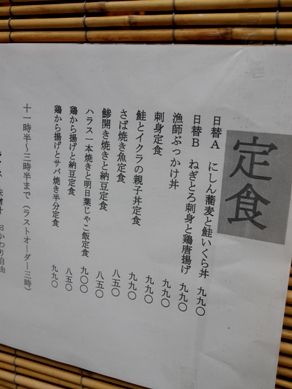 定食
日替A　にしん蕎麦と鮭いくら丼　九九〇
日替B　ねぎとろ刺身と鶏唐揚げ　九九〇
漁師ぶっかけ丼　九九〇
刺身定食　九九〇
鮭とイクラの親子丼定食　九九〇
さば焼き魚定食　八五〇
鯵開き焼きと納豆定食　八五〇
ハラス一本焼きと明日葉じゃこ飯定食　九〇〇
鶏から揚げと納豆定食　八五〇
鶏から揚げとサバ焼き半分定食　九九〇
十一時半～三時半まで（ラストオーダー三時）
おかわり自由